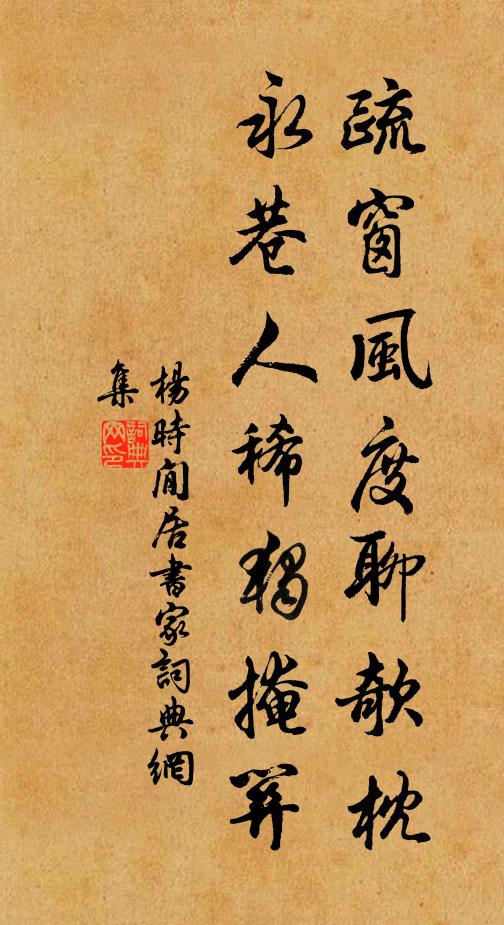 疏窗風度聊欹枕
永巷人稀獨掩關
楊時閒居書家詞典網
集
詞典网印